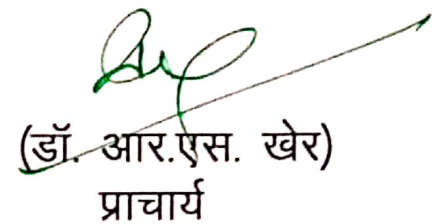 (डॉ. आर.एस. खेर)
प्राचार्य